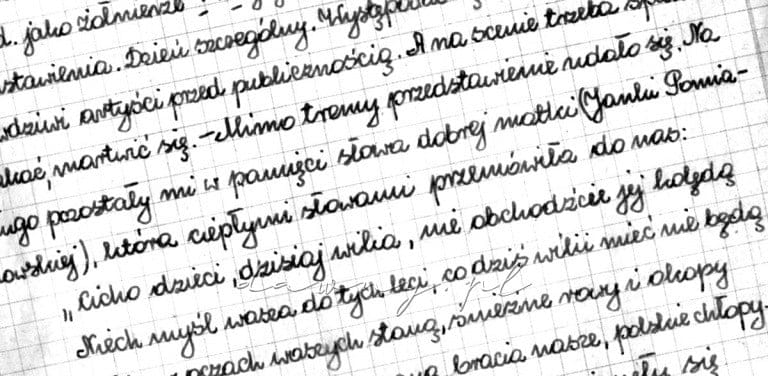 d. jako żołnierze
stawienia. Dzień szczególny. Występowa
wdziwi artyści przed publicznością. A na scenie trzeba
ukać, martwić się. – Mimo tremy przedstawienie udało się. Na
ugo pozostały mi w pamięci słowa dobrej matki (Janki Pomia-
owskiej), która ciepłymi słowami przemówiła do nas:
„Cicho dzieci, dzisiaj wilia, nie obchodźcie jej kolędą
Niech myśl wasza do tych leci, co dziś wilii mieć nie będą
oczach waszych staną, śnieżne rowy i okopy
bracia nasze, polskie chłopy.
się